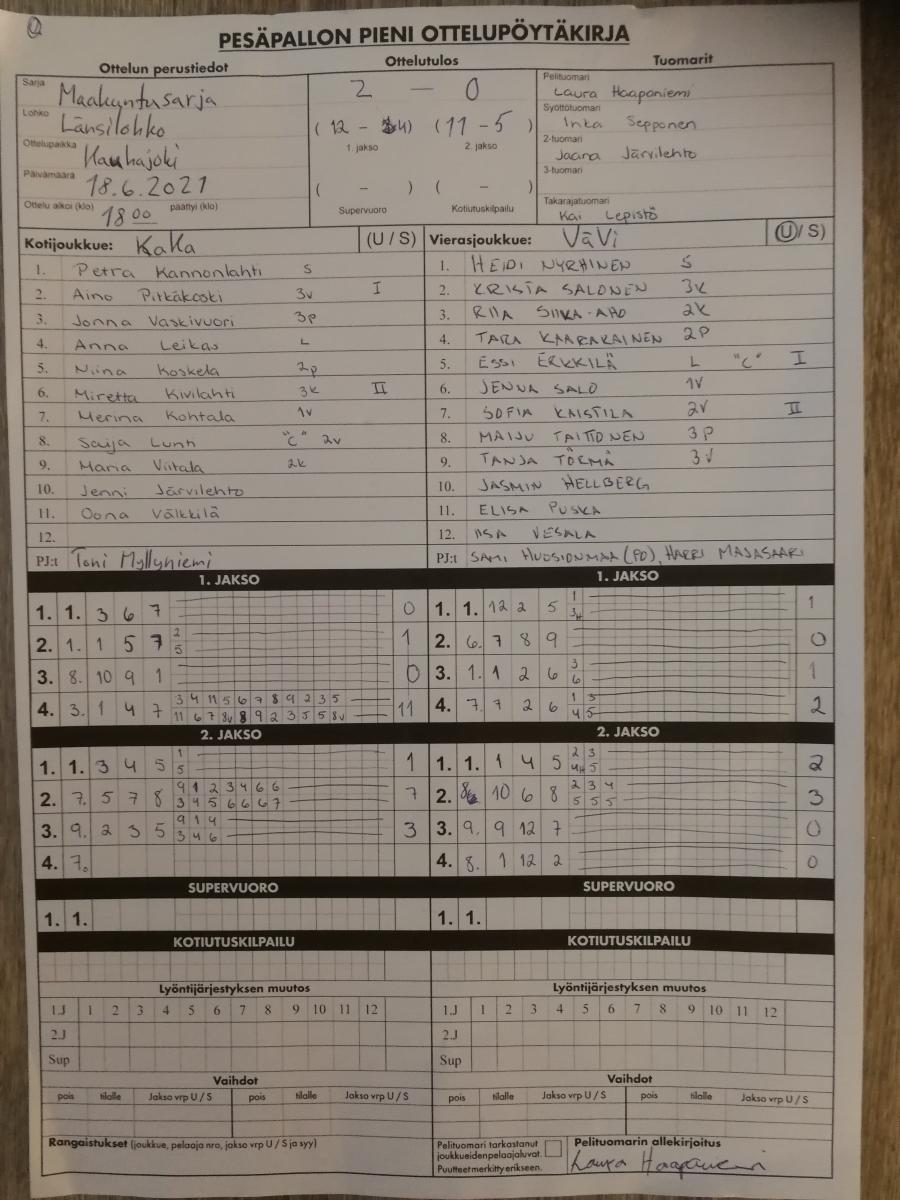 PESÄPALLON PIENI OTTELUPÖYTÄKIRJA
Ottelun perustiedot
Sarja Maakuntusarja
Lohko Länsilohko
Ottelupaikka Kauhajoki
Päivämäärä 18.6.2021
Ottelu alkoi (klo) 18 00 päättyi (klo)
Ottelutulos
2 — 0
(12 - 4) (11 - 5)
1. jakso 2. jakso
( - ) ( - )
Supervuoro Kotiutuskilpailu
Tuomarit
Pelituomari
Laura Haapaniemi
Syöttötuomari
Inka Sepponen
2-tuomari
Jaana Järvilehto
3-tuomari
Takarajatuomari
Kai Lepistö
Kotijoukkue: KaKa (U / S)
1. Petra Kannonlahti S
2. Aino Pitkäkoski 3v I
3. Jonna Vaskivuori 3p
4. Anna Leikas L
5. Niina Koskela 2p
6. Miretta Kivilahti 3k II
7. Merina Kohtala 1v
8. Saija Lunti "C" 2v
9. Maria Viitala 2k
10. Jenni Järvilehto
11. Oona Välkkilä
12.
PJ:t Toni Myllyniemi
Vierasjoukkue: VäVi (U / S)
1. HEIDI NYRHINEN S
2. KRISTA SALONEN 3K
3. RIIA SIIKA-AHO 2K
4. TARA KAARAKAINEN 2P
5. ESSI ERKKILÄ L "C" I
6. JENNA SALO 1V
7. SOFIA KAISTILA 2V II
8. MAIJU TAITTONEN 3P
9. TANJA TÖRMÄ 3V
10. JASMIN HELLBERG
11. ELISA PUSKA
12. IISA VESALA
PJ:t SAMI HUOSIONMAA (PO), HARRI MAJASAARI
1. JAKSO
1. 1. 3 6 7 0
2. 1. 1 5 7 2 1
5
3. 8. 10 9 1 0
4. 3. 1 4 7 3 4 11 5 6 7 8 9 2 3 5 11
11 6 7 8v 8 9 2 3 5 5 8v
1. JAKSO
1. 1. 12 2 5 1 1
3H
2. 6. 7 8 9 0
3. 1. 1 2 6 3 1
6
4. 7. 7 2 6 1 3 2
4 5
2. JAKSO
1. 1. 3 4 5 1 1
5
2. 7. 5 7 8 9 1 2 3 4 6 6 7
3 4 5 6 6 6 7
3. 9. 2 3 5 9 1 4 3
3 4 6
4. 7.
2. JAKSO
1. 1. 1 4 5 2 3 2
4H 5
2. 8. 10 6 8 2 3 4 3
5 5 5
3. 9. 9 12 7 0
4. 8. 1 12 2 0
SUPERVUORO
1. 1.
SUPERVUORO
1. 1.
KOTIUTUSKILPAILU
KOTIUTUSKILPAILU
Lyöntijärjestyksen muutos
1.J 1 2 3 4 5 6 7 8 9 10 11 12
2.J
Sup
Lyöntijärjestyksen muutos
1.J 1 2 3 4 5 6 7 8 9 10 11 12
2.J
Sup
Vaihdot
pois tilalle Jakso vrp U / S pois tilalle Jakso vrp U / S
Vaihdot
pois tilalle Jakso vrp U / S pois tilalle Jakso vrp U / S
Rangaistukset (joukkue, pelaaja nro, jakso vrp U / S ja syy)
Pelituomari tarkastanut
joukkueidenpelaajaluvat.
Puutteet merkitty erikseen.
Pelituomarin allekirjoitus
Laura Haapaniemi